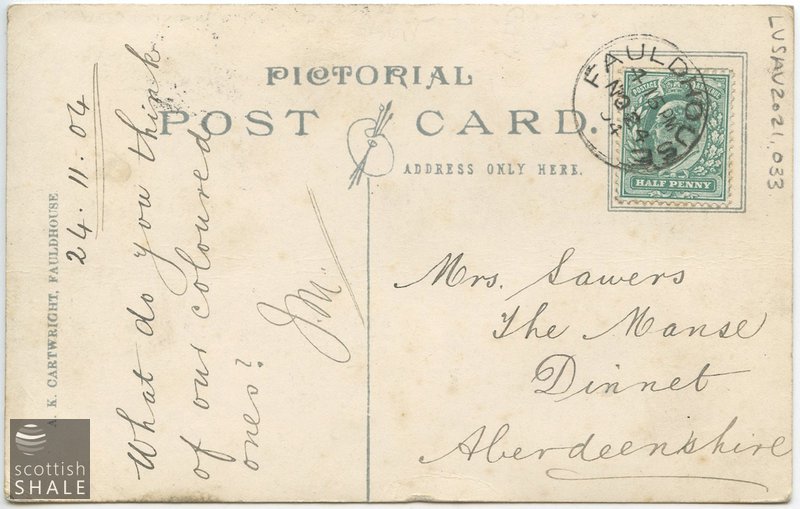 PICTORIAL
POST CARD.
ADDRESS ONLY HERE.
FAULDHOUSE
NO 24
04
POSTAGE
HALF PENNY
LVSAV2021.033
24. 11. 04
What do you think
of our coloured
ones?
J.M.
Mrs. Sawers
The Manse
Dinnet
Aberdeenshire
A. K. CARTWRIGHT, FAULDHOUSE.
scottish
SHALE